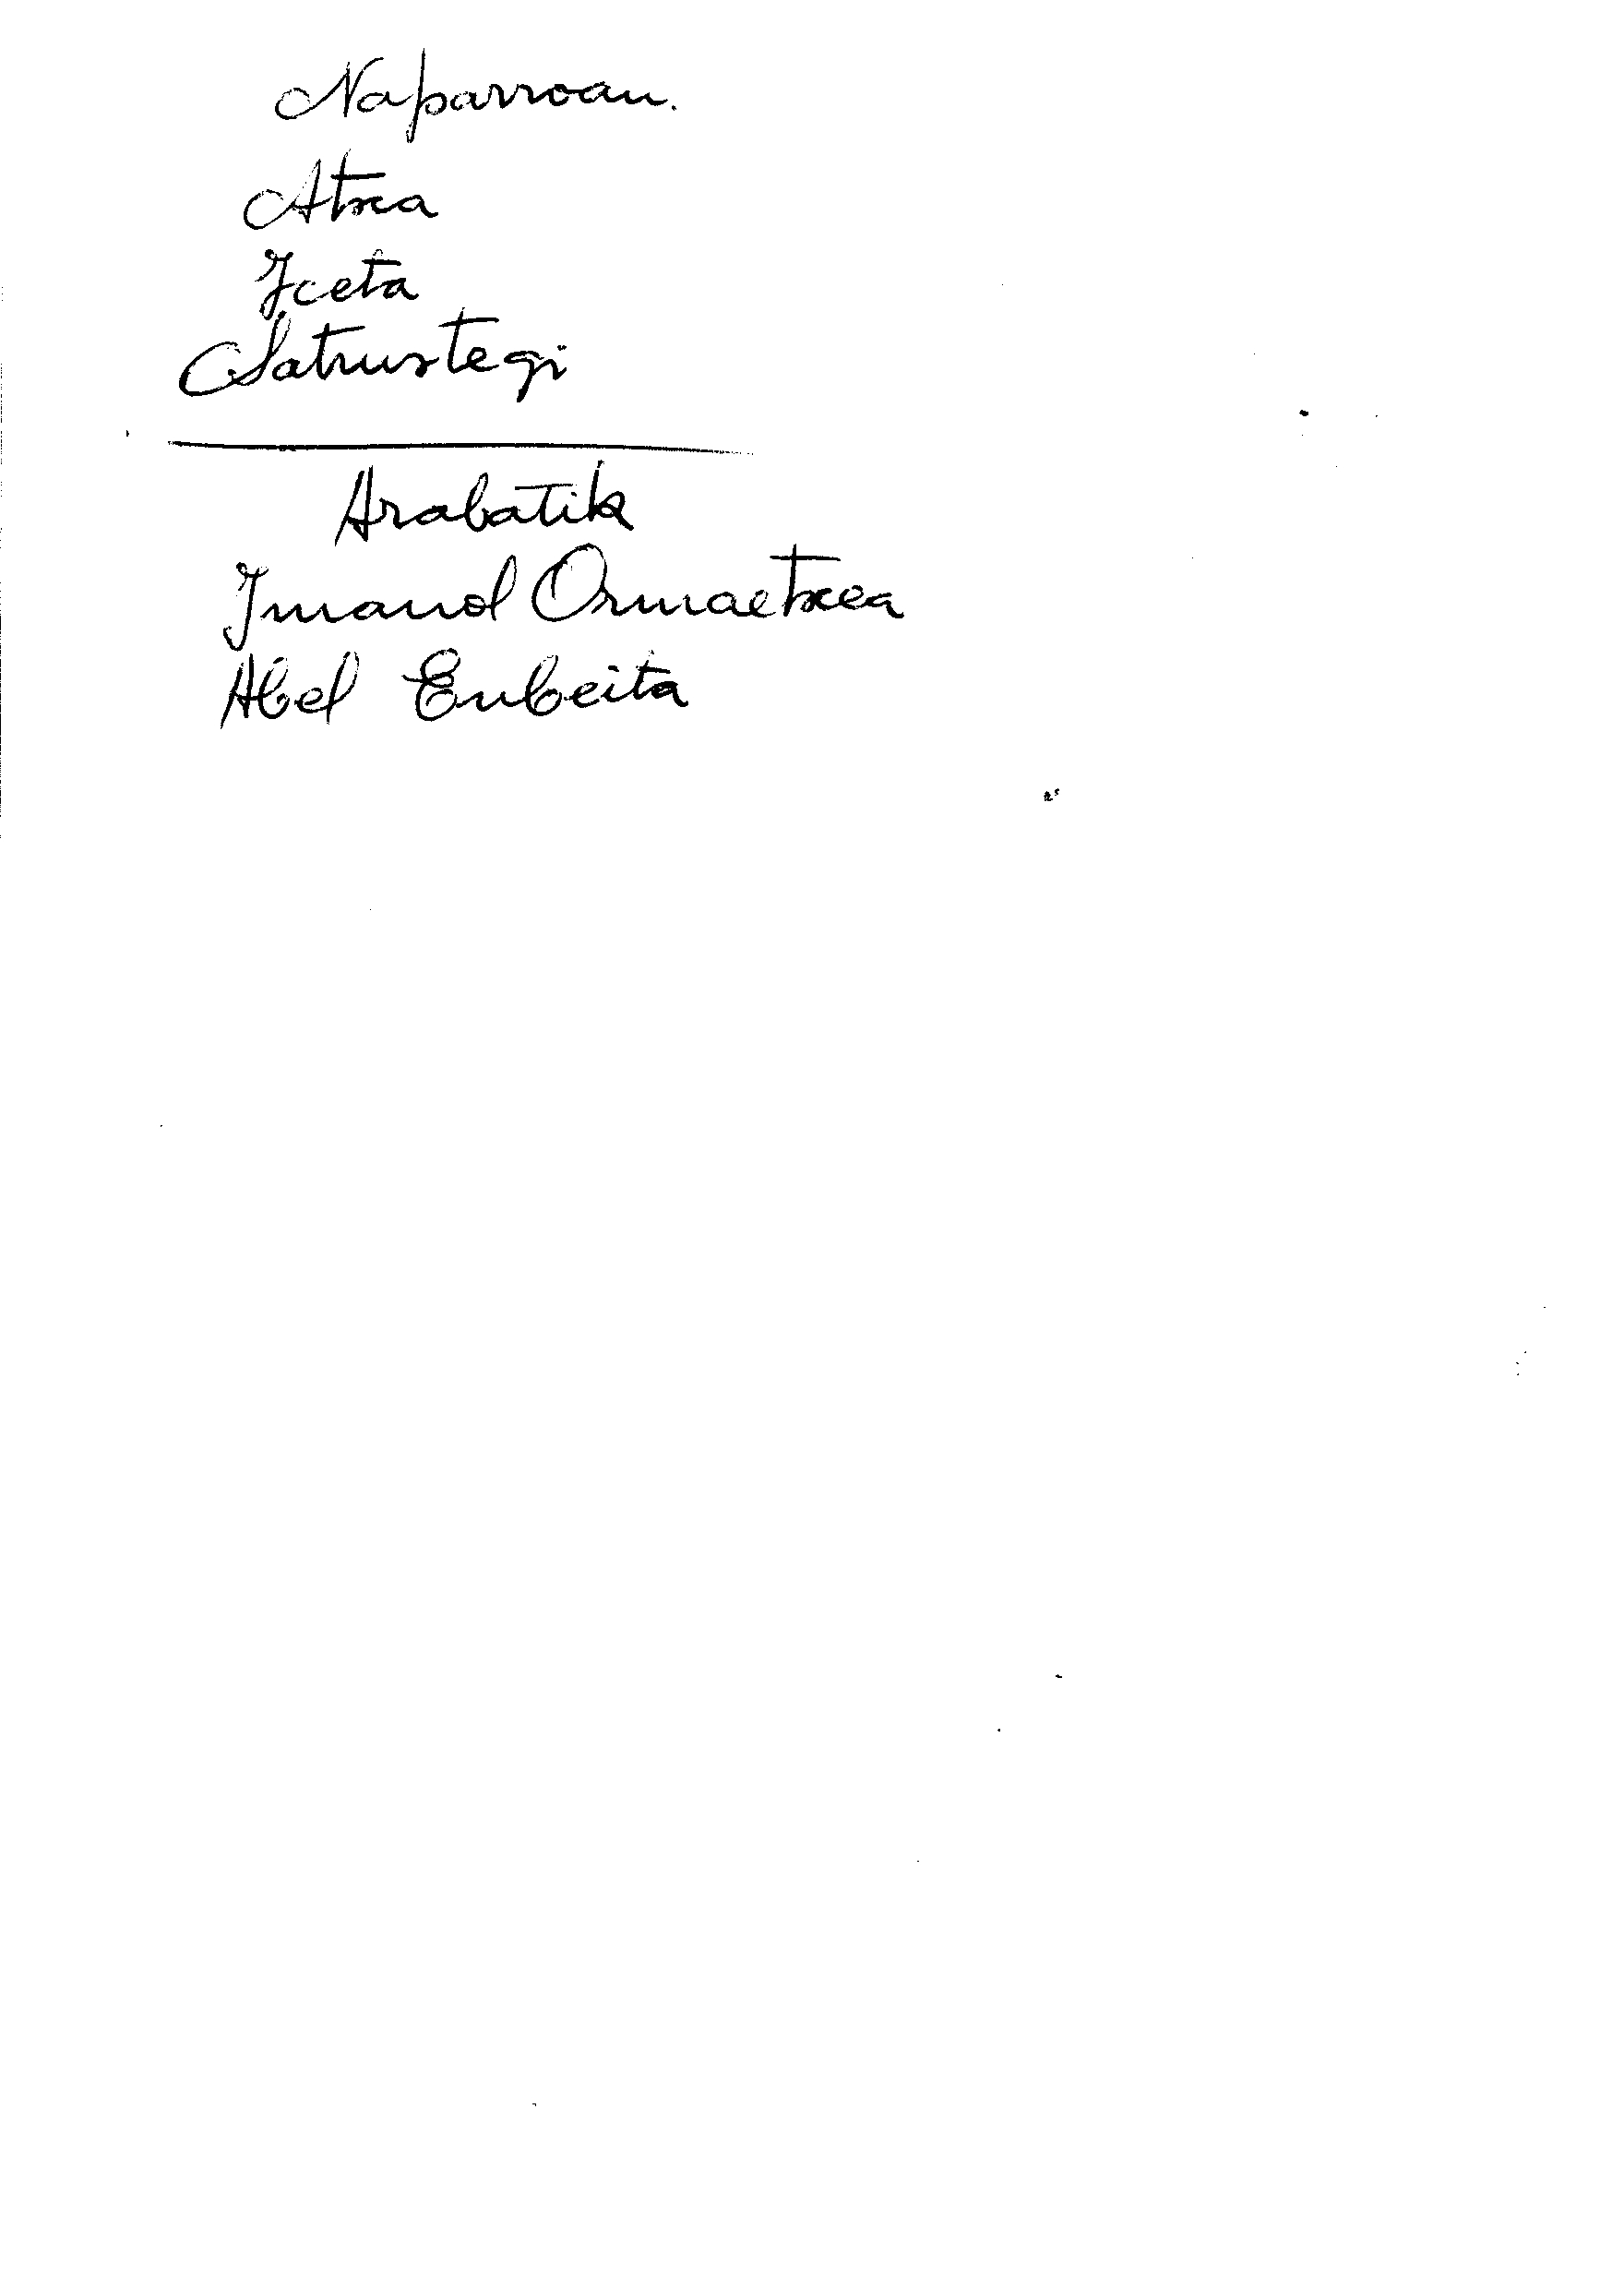 Naparroan.
Atxa
Iceta
Satrustegi
Arabatik
Imanol Ormaetxea
Abel Enbeita